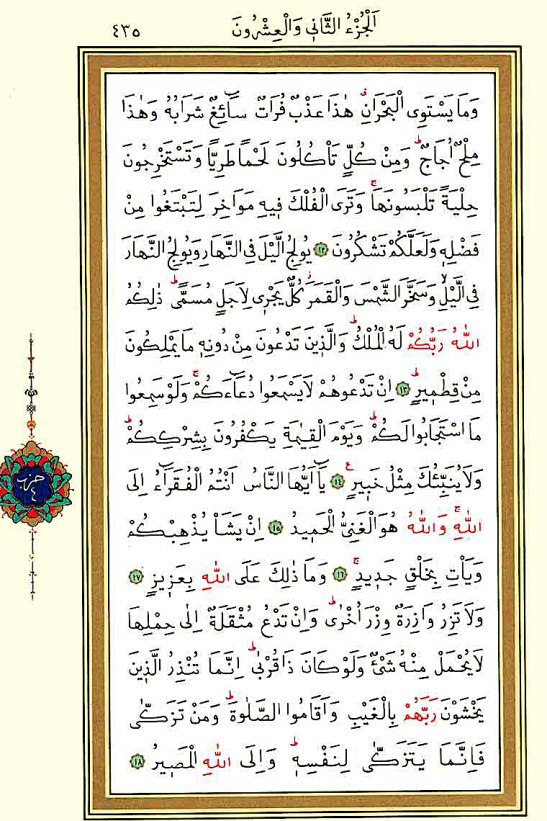 اَلْجُزْءُ الثَّانٖي وَالْعِشْرُونَ
٤٣٥
وَمَا يَسْتَوِى الْبَحْرَانِۗ هٰذَا عَذْبٌ فُرَاتٌ سَٓائِغٌ شَرَابُهُ وَهٰذَا
مِلْحٌ اُجَاجٌۜ وَمِنْ كُلٍّ تَأْكُلُونَ لَحْماً طَرِيًّا وَتَسْتَخْرِجُونَ
حِلْيَةً تَلْبَسُونَهَاۚ وَتَرَى الْفُلْكَ فٖيهِ مَوَاخِرَ لِتَبْتَغُوا مِنْ
فَضْلِهٖ وَلَعَلَّكُمْ تَشْكُرُونَ ﴿١٢﴾ يُولِجُ الَّيْلَ فِى النَّهَارِ وَيُولِجُ النَّهَارَ
فِى الَّيْلِۙ وَسَخَّرَ الشَّمْسَ وَالْقَمَرَۘ كُلٌّ يَجْرٖى لِاَجَلٍ مُسَمًّىۜ ذٰلِكُمُ
اللّٰهُ رَبُّكُمْ لَهُ الْمُلْكُۜ وَالَّذٖينَ تَدْعُونَ مِنْ دُونِهٖ مَا يَمْلِكُونَ
مِنْ قِطْمٖيرٍۜ ﴿١٣﴾ اِنْ تَدْعُوهُمْ لَا يَسْمَعُوا دُعَٓاءَكُمْۚ وَلَوْ سَمِعُوا
مَا اسْتَجَابُوا لَكُمْۜ وَيَوْمَ الْقِيٰمَةِ يَكْفُرُونَ بِشِرْكِكُمْۜ
وَلَا يُنَبِّئُكَ مِثْلُ خَبٖيرٍࣖ ﴿١٤﴾ يَٓا اَيُّهَا النَّاسُ اَنْتُمُ الْفُقَرَٓاءُ اِلَى
اللّٰهِۚ وَاللّٰهُ هُوَ الْغَنِىُّ الْحَمٖيدُ ﴿١٥﴾ اِنْ يَشَأْ يُذْهِبْكُمْ
وَيَأْتِ بِخَلْقٍ جَدٖيدٍۚ ﴿١٦﴾ وَمَا ذٰلِكَ عَلَى اللّٰهِ بِعَزٖيزٍ ﴿١٧﴾
وَلَا تَزِرُ وَازِرَةٌ وِزْرَ اُخْرٰىۜ وَاِنْ تَدْعُ مُثْقَلَةٌ اِلٰى حِمْلِهَا
لَا يُحْمَلْ مِنْهُ شَيْءٌ وَلَوْ كَانَ ذَا قُرْبٰىۜ اِنَّمَا تُنْذِرُ الَّذٖينَ
يَخْشَوْنَ رَبَّهُمْ بِالْغَيْبِ وَاَقَامُوا الصَّلٰوةَۜ وَمَنْ تَزَكّٰى
فَاِنَّمَا يَتَزَكّٰى لِنَفْسِهٖۜ وَاِلَى اللّٰهِ الْمَصٖيرُ ﴿١٨﴾
حزب
٤